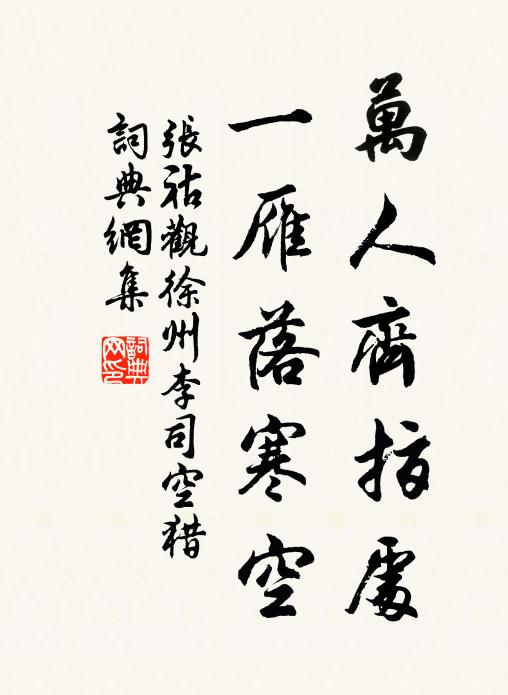 萬人齊指處
一雁落寒空
張祜觀徐州李司空猎
詞典網集
詞典網印